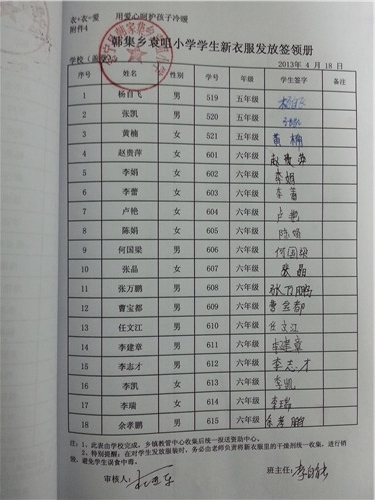 衣+衣=爱 用爱心呵护孩子冷暖
附件4
韩集乡袁咀小学学生新衣服发放签领册
学校（盖章） 2013年 4 月 18 日
序号 姓名 性别 学号 年级 学生签字 备注
1 杨自飞 男 519 五年级
2 张凯 男 520 五年级
3 黄楠 女 521 五年级 黄楠
4 赵贵萍 女 601 六年级 赵贵萍
5 李娟 女 602 六年级 李娟
6 李蕾 女 603 六年级 李蕾
7 卢艳 女 604 六年级 卢艳
8 陈娟 女 605 六年级 陈娟
9 何国梁 男 606 六年级 何国梁
10 张晶 女 607 六年级 张晶
11 张万鹏 男 608 六年级 张万鹏
12 曹宝都 男 609 六年级 曹宝都
13 任文江 男 610 六年级 任文江
14 李建章 男 611 六年级 李建章
15 李志才 男 612 六年级 李志才
16 李凯 女 613 六年级 李凯
17 李瑞 女 614 六年级 李瑞
18 余孝鹏 男 615 六年级 余孝鹏
注：1、此表由学校完成，乡镇教管中心收集后统一报送资助中心。
2、特别提醒，在对学生发放服装时，务必由老师负责将新衣服里的干燥剂统一收集，进行销
毁，避免学生误食中毒。
审核人： 班主任：